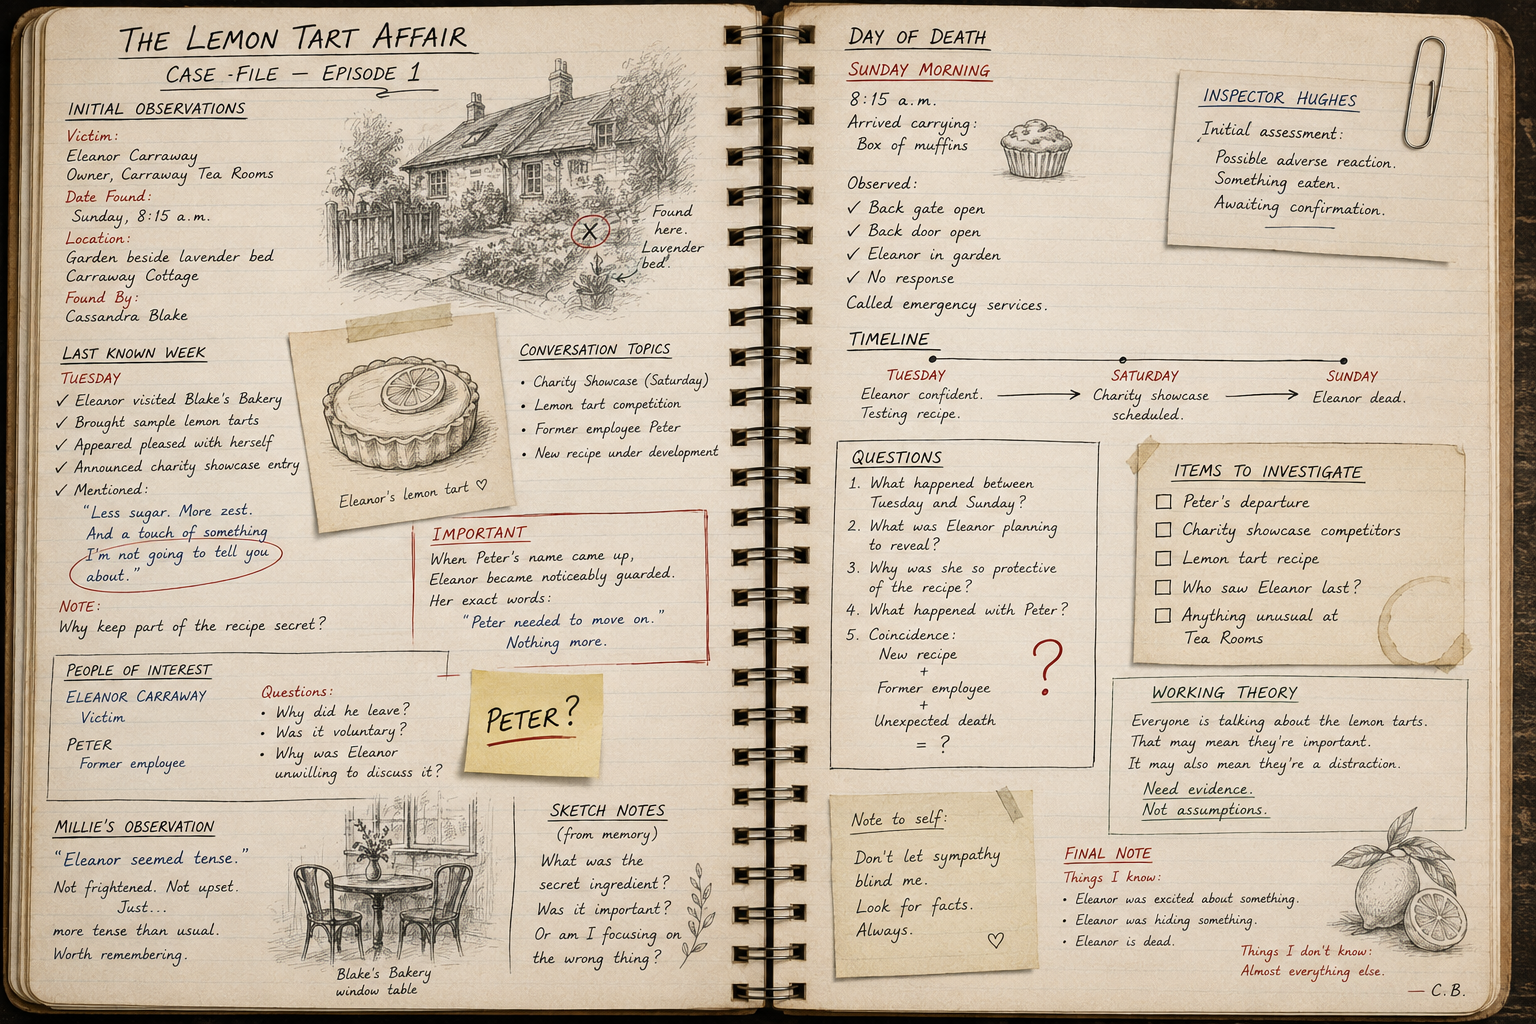 THE LEMON TART AFFAIR
CASE-FILE — EPISODE 1
INITIAL OBSERVATIONS
Victim:
Eleanor Carraway
Owner, Carraway Tea Rooms
Date Found:
Sunday, 8:15 a.m.
Location:
Garden beside lavender bed
Carraway Cottage
Found By:
Cassandra Blake
X
Found
here.
Lavender
bed.
LAST KNOWN WEEK
TUESDAY
✓ Eleanor visited Blake's Bakery
✓ Brought sample lemon tarts
✓ Appeared pleased with herself
✓ Announced charity showcase entry
✓ Mentioned:
"Less sugar. More zest.
And a touch of something
I'm not going to tell you
about."
NOTE:
Why keep part of the recipe secret?
Eleanor's lemon tart ♡
CONVERSATION TOPICS
• Charity Showcase (Saturday)
• Lemon tart competition
• Former employee Peter
• New recipe under development
IMPORTANT
When Peter's name came up,
Eleanor became noticeably guarded.
Her exact words:
"Peter needed to move on."
Nothing more.
PEOPLE OF INTEREST
ELEANOR CARRAWAY
Victim
PETER
Former employee
Questions:
• Why did he leave?
• Was it voluntary?
• Why was Eleanor
unwilling to discuss it?
PETER?
MILLIE'S OBSERVATION
"Eleanor seemed tense."
Not frightened. Not upset.
Just...
more tense than usual.
Worth remembering.
Blake's Bakery
window table
SKETCH NOTES
(from memory)
What was the
secret ingredient?
Was it important?
Or am I focusing on
the wrong thing?
DAY OF DEATH
SUNDAY MORNING
8:15 a.m.
Arrived carrying:
Box of muffins
Observed:
✓ Back gate open
✓ Back door open
✓ Eleanor in garden
✓ No response
Called emergency services.
INSPECTOR HUGHES
Initial assessment:
Possible adverse reaction.
Something eaten.
Awaiting confirmation.
TIMELINE
TUESDAY
Eleanor confident.
Testing recipe.
SATURDAY
Charity showcase
scheduled.
SUNDAY
Eleanor dead.
QUESTIONS
1. What happened between
Tuesday and Sunday?
2. What was Eleanor planning
to reveal?
3. Why was she so protective
of the recipe?
4. What happened with Peter?
5. Coincidence:
New recipe
+
Former employee
+
Unexpected death
= ?
?
ITEMS TO INVESTIGATE
☐ Peter's departure
☐ Charity showcase competitors
☐ Lemon tart recipe
☐ Who saw Eleanor last?
☐ Anything unusual at
Tea Rooms
WORKING THEORY
Everyone is talking about the lemon tarts.
That may mean they're important.
It may also mean they're a distraction.
Need evidence.
Not assumptions.
Note to self:
Don't let sympathy
blind me.
Look for facts.
Always.
♡
FINAL NOTE
Things I know:
• Eleanor was excited about something.
• Eleanor was hiding something.
• Eleanor is dead.
Things I don't know:
Almost everything else.
— C.B.